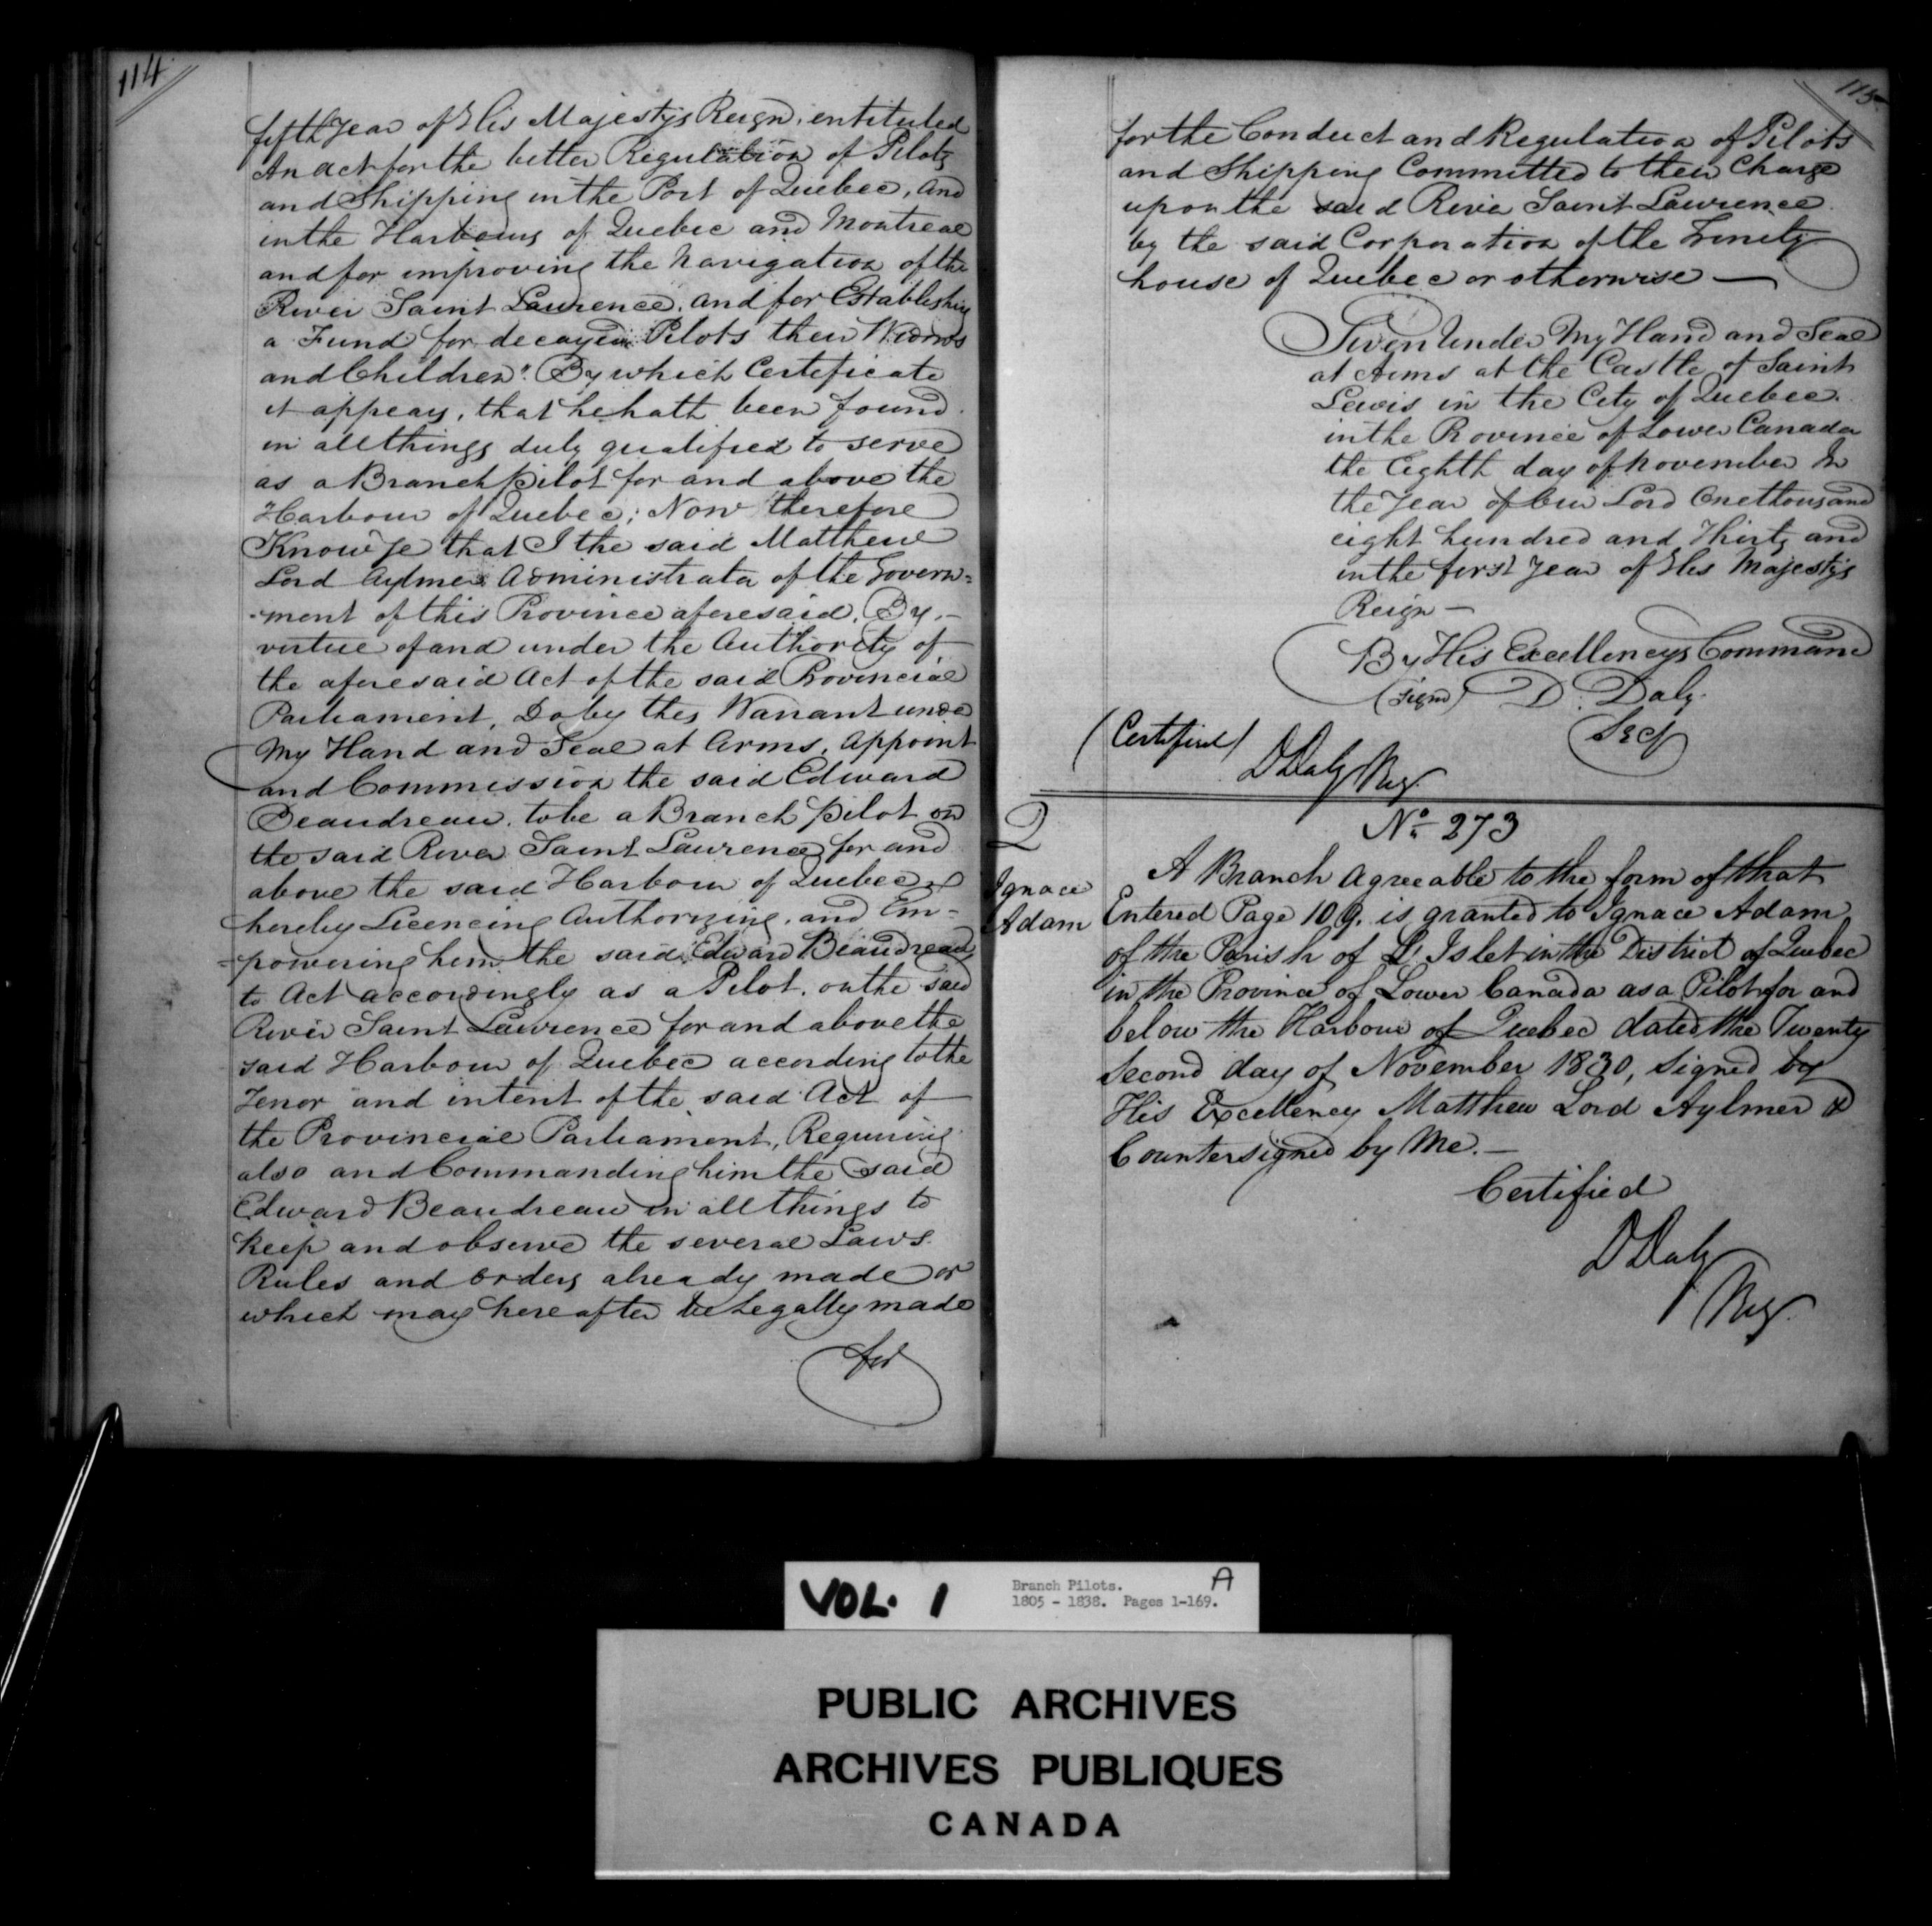 114
fifth Year of His Majestys Reign, entituled
An act for the better Regulation of Pilots
and Shipping in the Port of Quebec, and
in the Harbours of Quebec and Montreal
and for improving the Navigation of the
River Saint Laurence, and for Establishing
a Fund for decayed Pilots their Widows
and Children". By which Certificate
it appears, that he hath been found
in all things duly qualified to serve
as a Branch Pilot for and above the
Harbour of Quebec; Now therefore
Know Ye that I the said Matthew
Lord Aylmer Administrator of the Govern=
-ment of this Province aforesaid, By,-
virtue of and under the Authority of
the aforesaid Act of the said Provincial
Parliament, Do by this Warrant under
My Hand and Seal at Arms, Appoint
and Commission the said Edward
Beaudreau, to be a Branch Pilot on
the said River Saint Laurence for and
above the said Harbour of Quebec
hereby Licencing Authorizing, and Em=
=powering him the said Edward Beaudreau
to Act accordingly as a Pilot, on the said
River Saint Lawrence for and above the
said Harbour of Quebec according to the
Tenor and intent of the said Act of
the Provincial Parliament, Requiring
also and Commanding him the said
Edward Beaudreau in all things to
keep and observe the several Laws
Rules and orders already made or
which may hereafter be Legally made
for
115
for the Conduct and Regulation of Pilots
and Shipping Committed to their Charge
upon the said River Saint Lawrence
by the said Corporation of the Trinity
house of Quebec or otherwise —
Given Under My Hand and Seal
at Arms at the Castle of Saint
Lewis in the City of Quebec.
in the Province of Lower Canada
the Eighth day of November In
the Year of Our Lord One thousand
eight hundred and Thirty and
in the first Year of His Majesty's
Reign —
By His Excellencys Command
(Sign) D. Daly.
Secy
(Certified)
D Daly Reg.
2
No 273
Ignace
Adam
A Branch Agreeable to the form of that
Entered Page 109. is granted to Ignace Adam
of the Parish of L'Islet in the District of Quebec
in the Province of Lower Canada as a Pilot for and
below the Harbour of Quebec dated the Twenty
Second day of November 1830, Signed by
His Excellency Matthew Lord Aylmer &
Countersigned by Me. —
Certified
D Daly
Reg.
VOL. 1
Branch Pilots. A
1805 - 1838. Pages 1-169.
PUBLIC ARCHIVES
ARCHIVES PUBLIQUES
CANADA